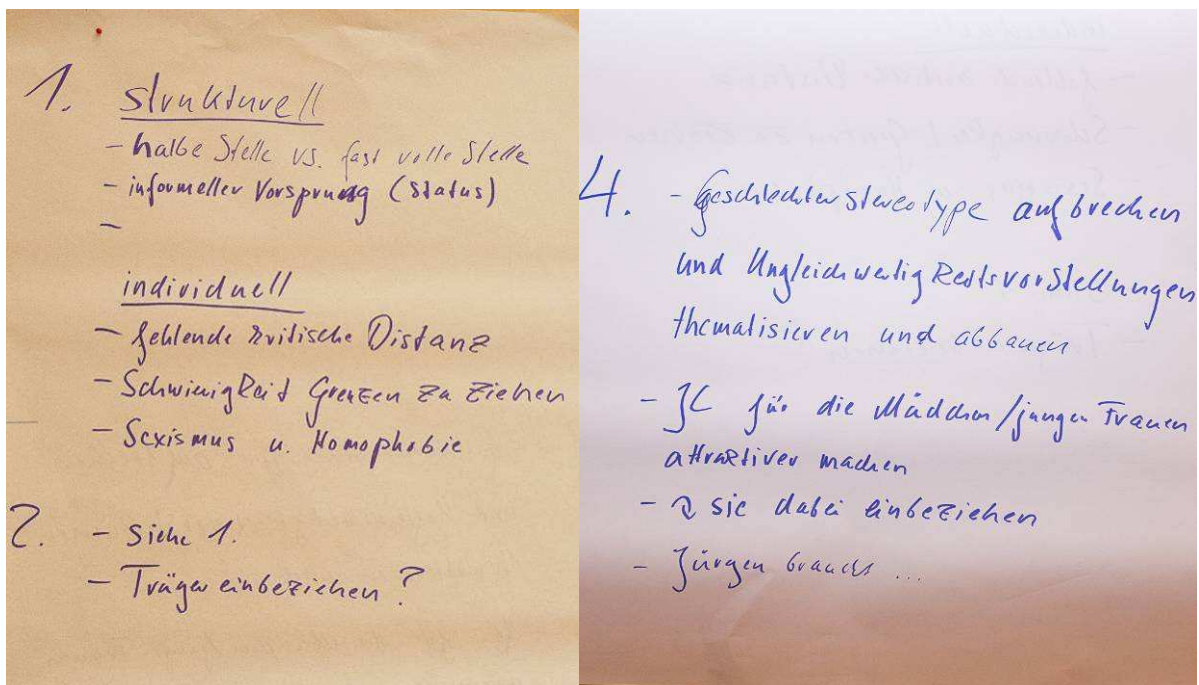 1. strukturell
- halbe Stelle vs. fast volle Stelle
- informeller Vorsprung (Status)
-
individuell
- fehlende kritische Distanz
- Schwierigkeit Grenzen zu ziehen
- Sexismus u. Homophobie
2. - Siehe 1.
- Träger einbeziehen?
4. - Geschlechterstereotype aufbrechen
und Ungleichwertigkeitsvorstellungen
thematisieren und abbauen
- JC für die Mädchen/jungen Frauen
attraktiver machen
- sie dabei einbeziehen
- Jürgen braucht ...